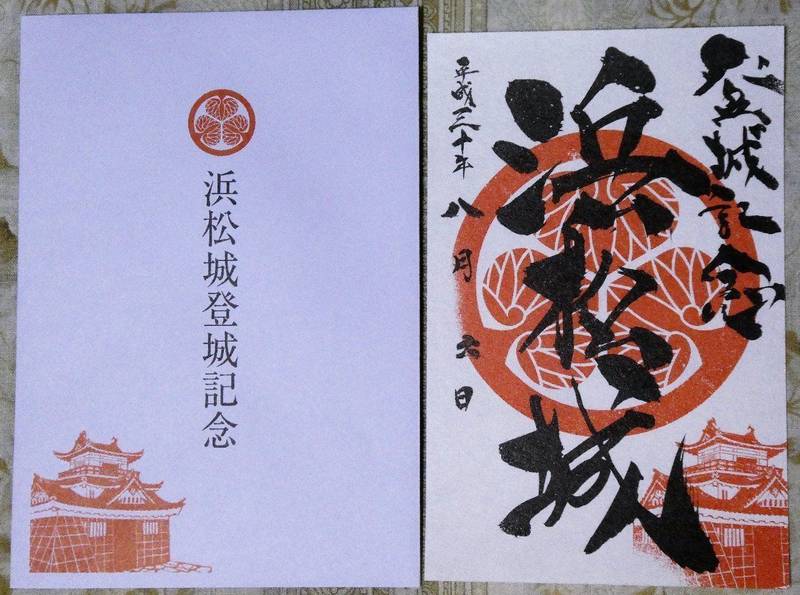 浜松城登城記念
登城記念
浜松城
平成三十年八月六日